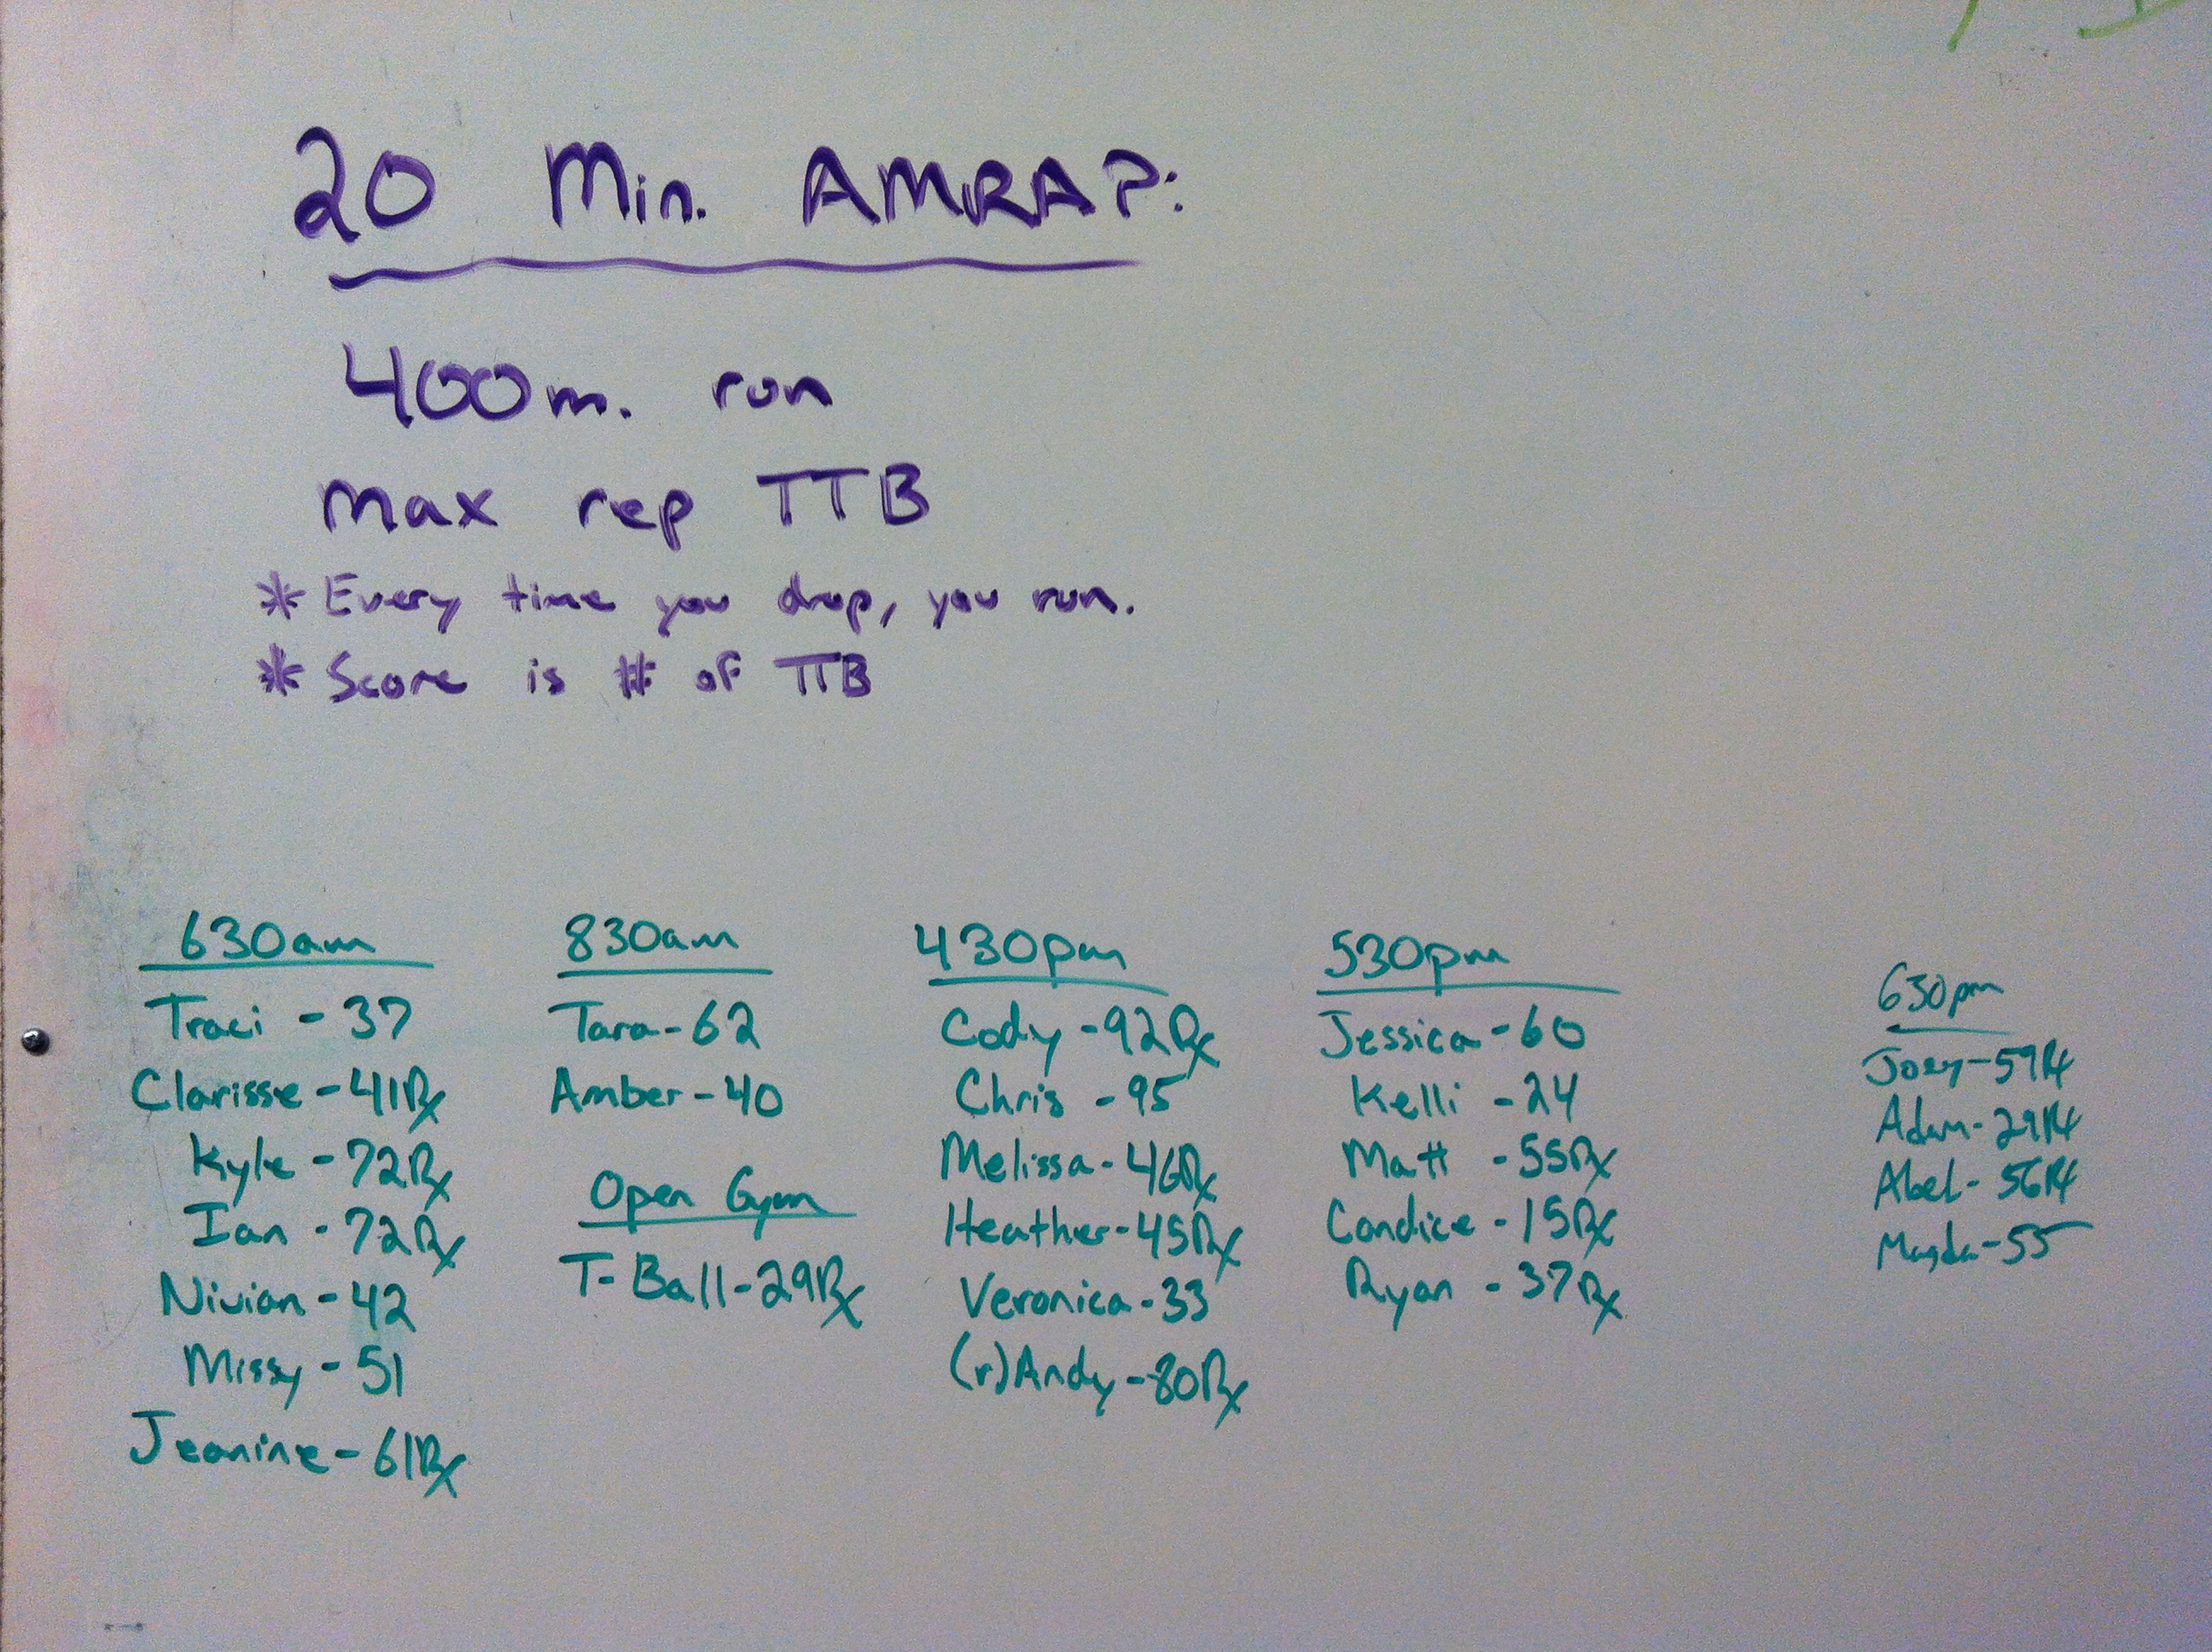 20 Min. AMRAP:
400m. run
max rep TTB
* Every time you drop, you run.
* Score is # of TTB
630am
Traci - 37
Clarisse - 41Rx
Kyle - 72Rx
Ian - 72Rx
Nivian - 42
Missy - 51
Jeanine - 61Rx
830am
Tara - 62
Amber - 40
Open Gym
T-Ball - 29Rx
430pm
Cody - 92Rx
Chris - 95
Melissa - 46Rx
Heather - 45Rx
Veronica - 33
(r)Andy - 80Rx
530pm
Jessica - 60
Kelli - 24
Matt - 55Rx
Candice - 15Rx
Ryan - 37Rx
630pm
Joey - 59Rx
Adam - 29Rx
Abel - 56Rx
Magda - 55